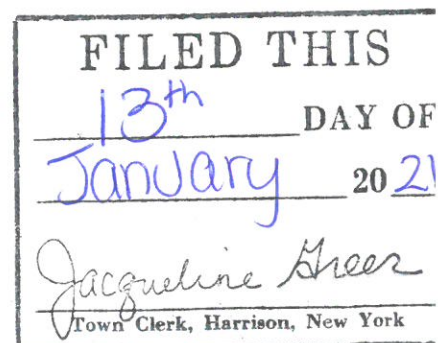 FILED THIS
13th DAY OF
January 20 21
Jacqueline Greer
Town Clerk, Harrison, New York